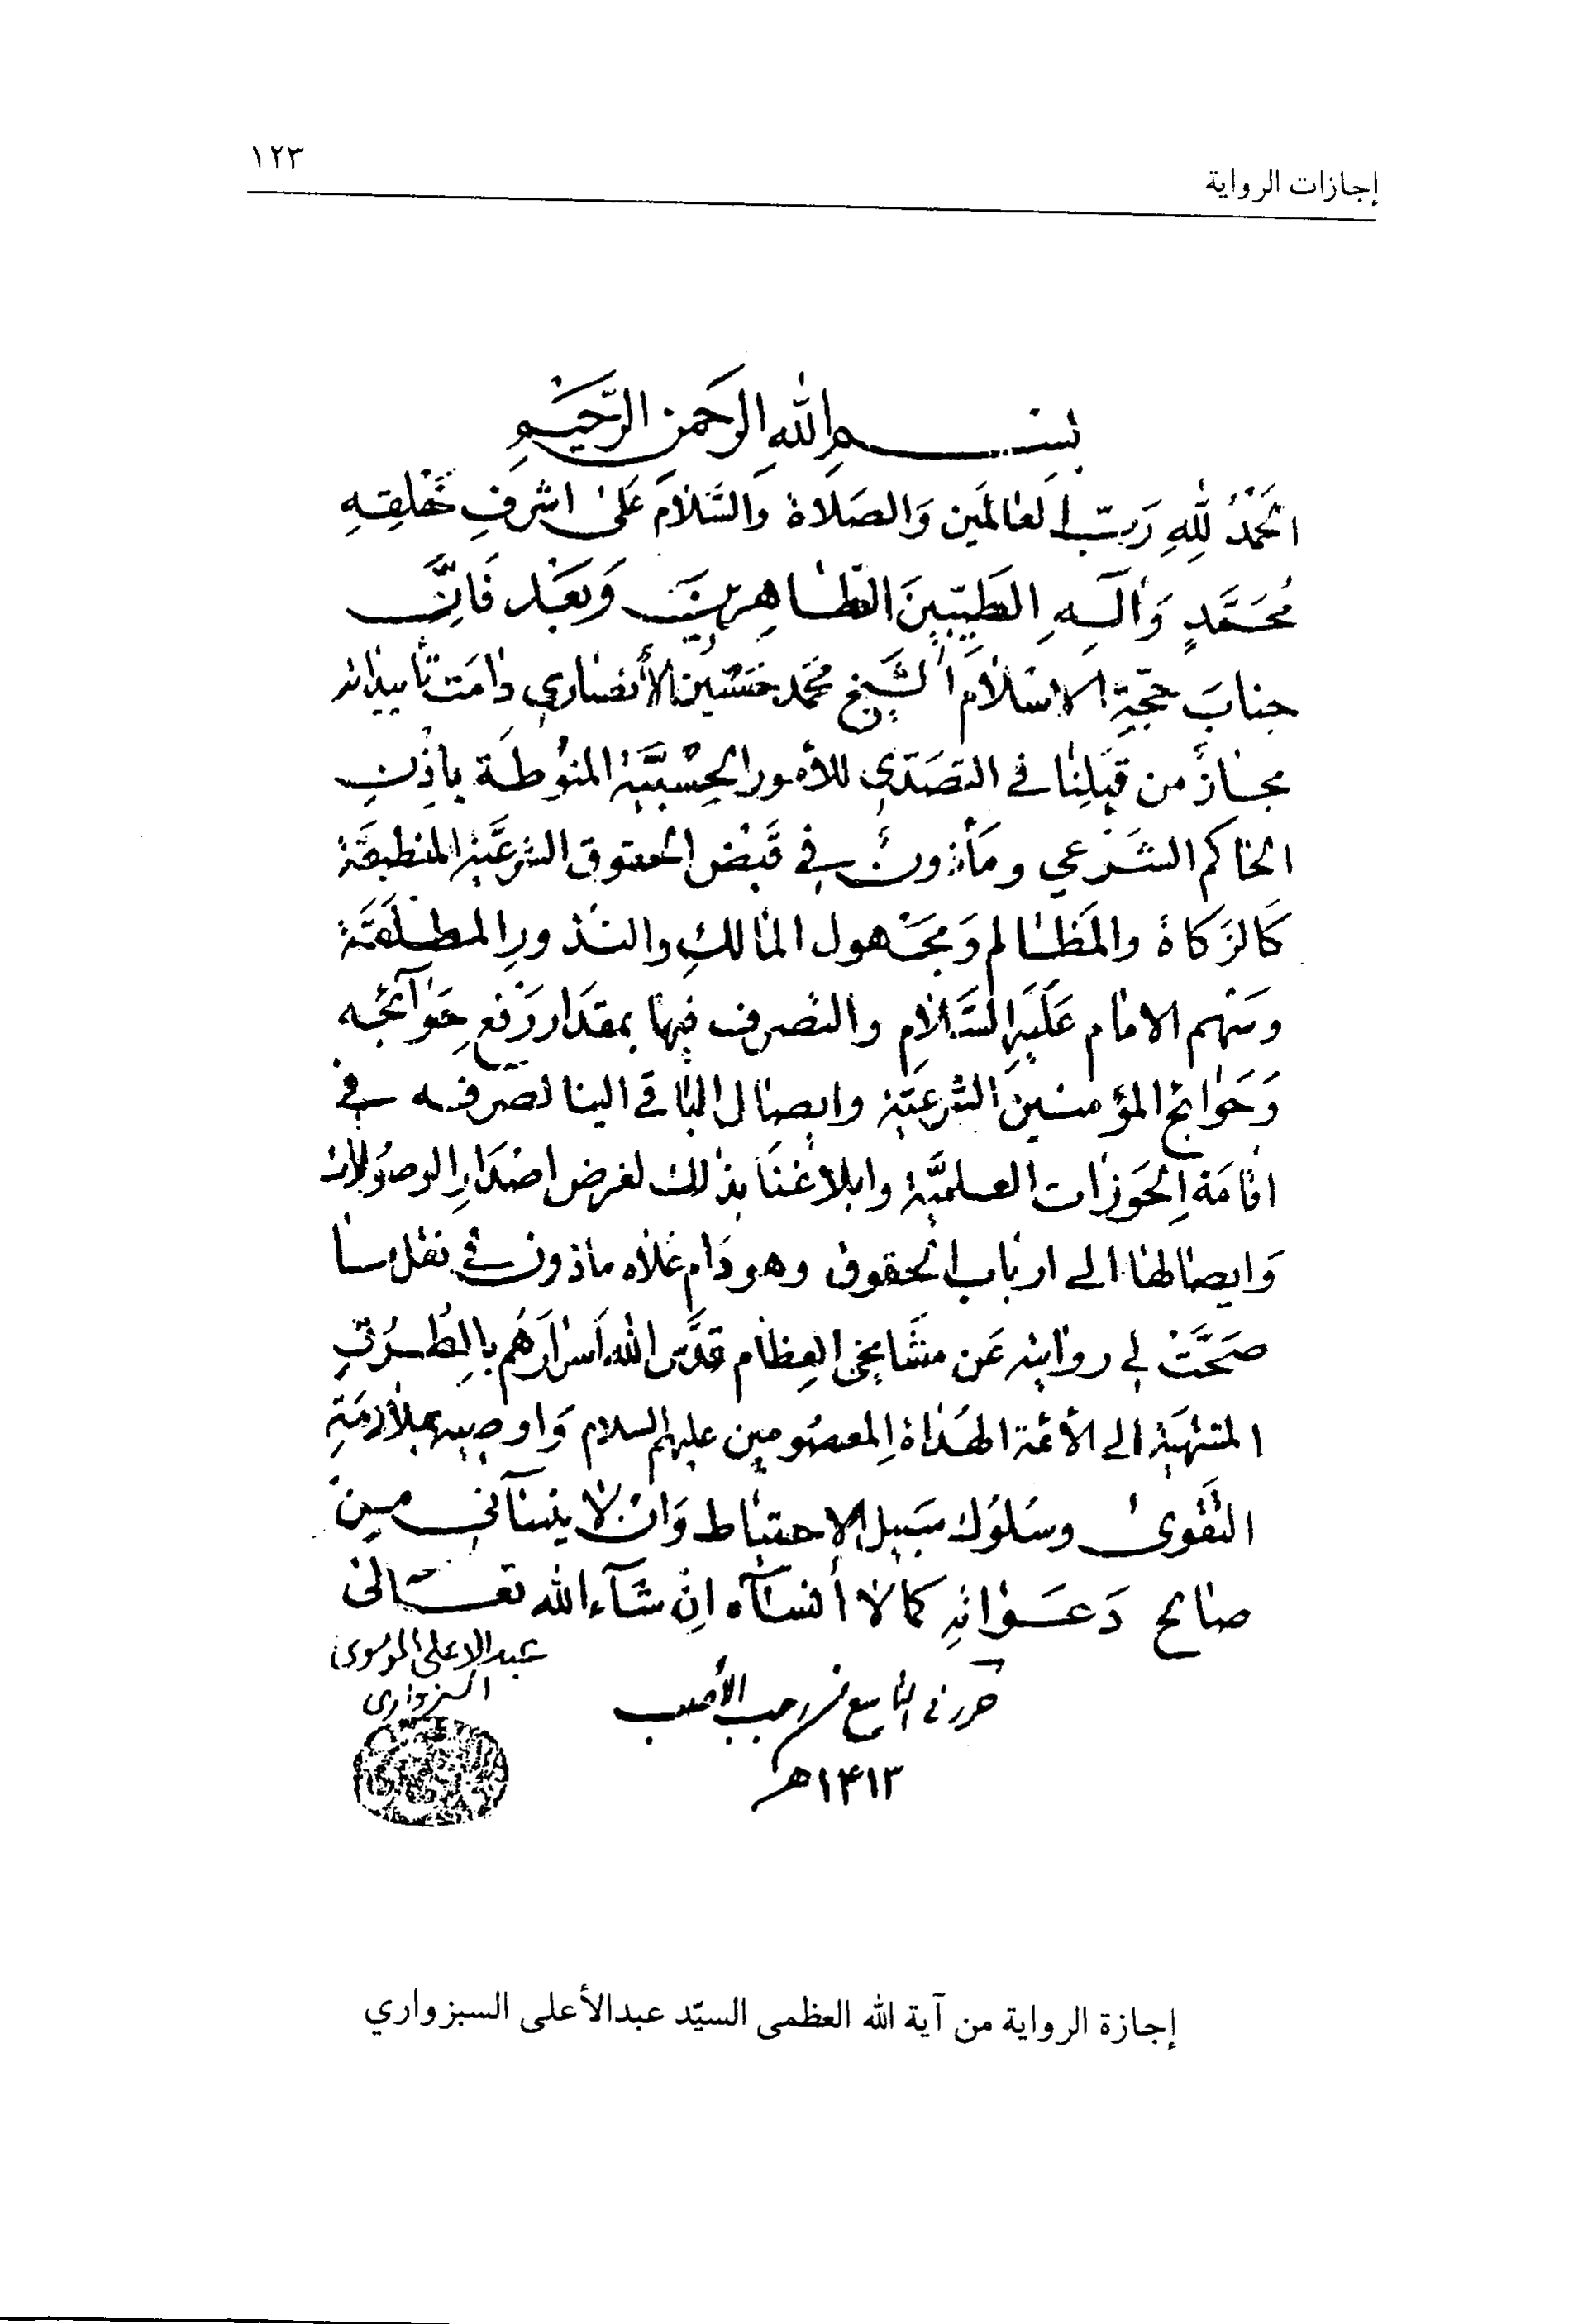 ١٢٣
إجازات الرواية
بسم الله الرحمن الرحيم
الحَمْدُ لِلّهِ رَبّ العالمَين وَالصَلَاة وَالسَّلامَ عَلىٰ اشرفِ خَلقِهِ
مُحَمَّدٍ وَآلِهِ الطَيّبينَ الطّاهِرينَ وَبَعَد فَإنَّ
جنابَ حجّةِ الاسْلام الشَيخ محَمد حسَين الأنصاري دامَت تأييداته
مجازٌ من قِبَلِنا في التصَدّي للأمور الحِسْبيَّة المنوُطَة بإذنِ
الحاكم الشَرعي ومَأذونٌ في قَبْض الحقوق الشرعَيّة المنطبقَة
كَالزَكاة والمَظالم وَمجَهول المالكِ والنذورِ المطلَقَة
وسَهم الامام عَلَيهِ السَّلامِ والتصرف فيها بمقدَار رَفع حَوآئجه
وَحَوائج المؤمنين الشرعيّة وايصال الباقي الينا لصرفه في
اقامَة الحَوزات العلميَّة وابلاغنَا بذلك لغرض اصْدَارِ الوصُولات
وَايصالها الى ارباب الحقوق وهو دَام عُلاه ماذون في نقل ما
صَحَّت لي روايته عَن مشَايخي العِظام قدَّس الله أسرارَهُم بالِطُرُقِ
المنتهَية الى الأئمة الهُداة المعصُومين عليهم السلام وَاوصيه بملازمَةِ
التَقوىٰ وسُلوُك سَبيل الاحتياط وَانْ لا ينسآني من
صالح دَعَواتِه كما لا أنسَاه انْ شآء الله تعَالىٰ
عبد الاعلى الموسوي
السبزواري
حرر في التاسع من رجب الأصب
١۴١٣هـ
إجازة الرواية من آية الله العظمى السيّد عبدالأعلى السبزواري